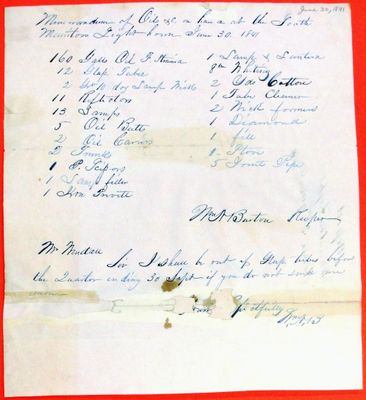 June 30, 1841
Memorandum of Oils &c on hand at the South
Manitou Light house June 30. 1841
160 Galls Oil
12 Glass Tubes
Lamp Wick
11 Reflectors
13 Lamps
5 Oil Butts
2 Oil Carriers
2 Trunks
1 P. Scissors
1 Lamp filler
1
1 Lamp & Lantern
8 lbs Whiting
2 Yds Cotton
1 Tube Cleaner
2 Wick formers
1 Diamond
1 file
1 Stove
5 Joints Pipe
Wm A Burton Keeper
Mr Wendell
Sir I shall be out of Glass tubes before
the Quarter ending 30 Sept if you do not send me
some
Yours Respectfully
Wm A B